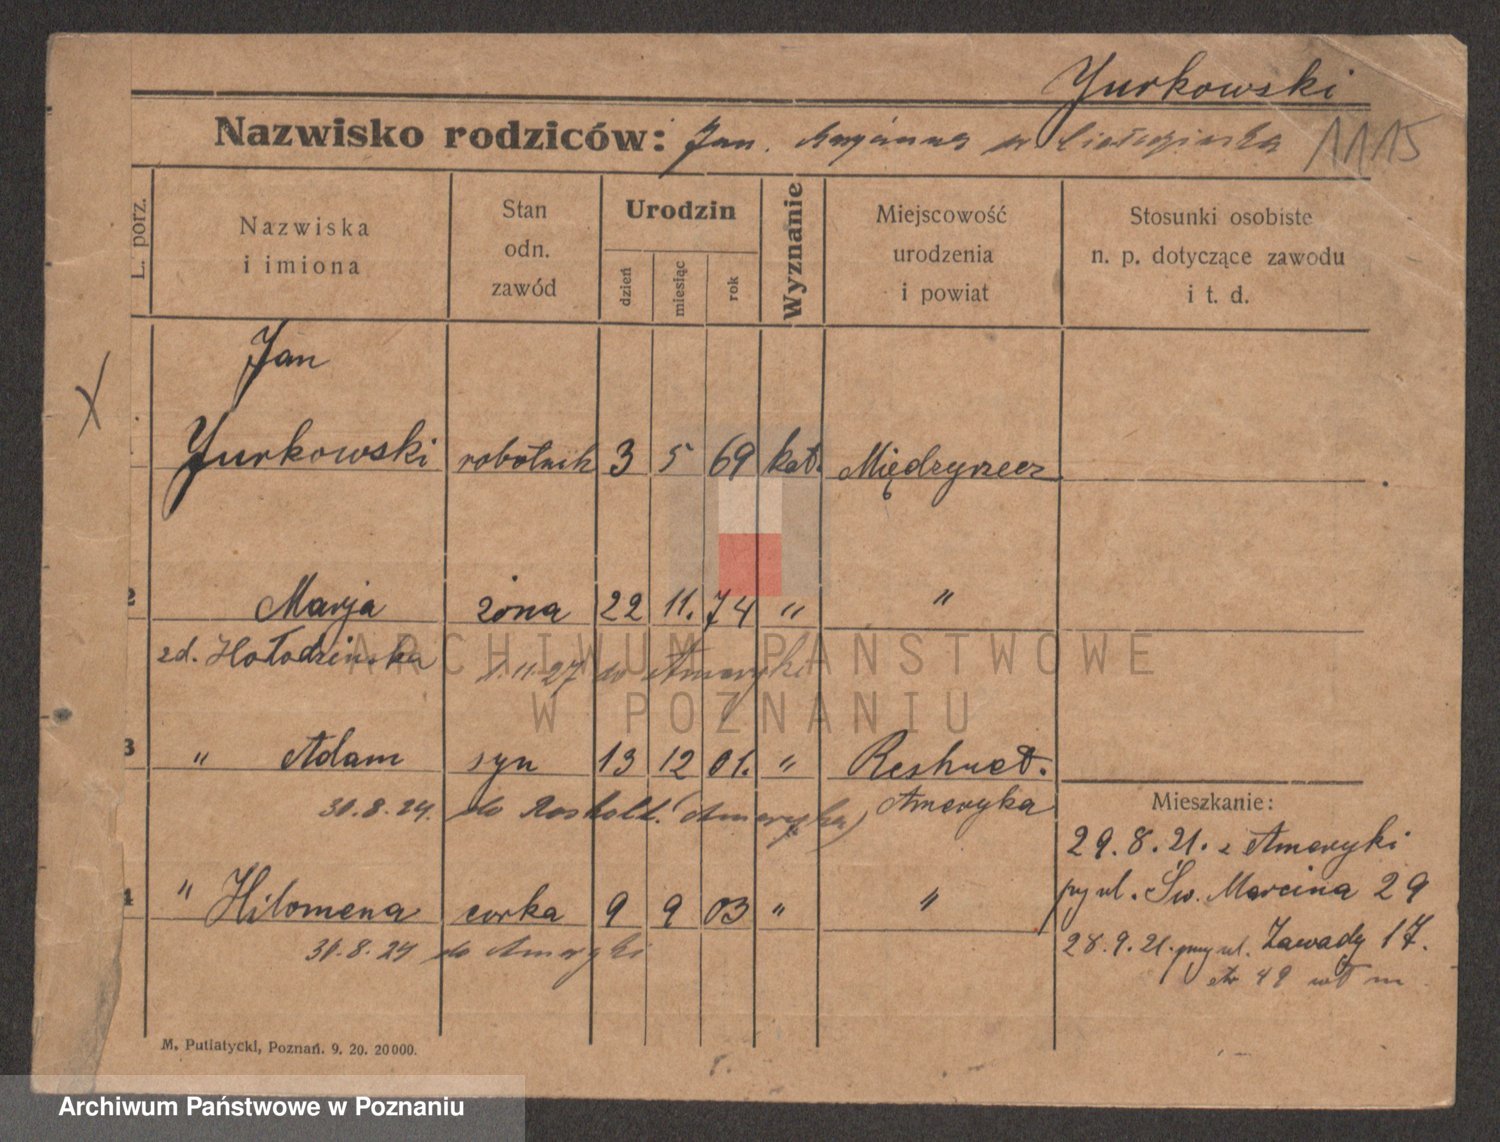 Yurkowski
Nazwisko rodziców: Jan. Maryanna
1115
L. porz.
Nazwiska
i imiona
Stan
odn.
zawód
Urodzin
dzień
miesiąc
rok
Wyznanie
Miejscowość
urodzenia
i powiat
Stosunki osobiste
n. p. dotyczące zawodu
i t. d.
Jan
Yurkowski robotnik 3 5 69 kat. Międzyrzecz
2 Marja żona 22 11. 74 " "
zd. Hołodzińska 1.11.27 do Ameryki
3 " Adam syn 13 12 01. "
30.8.24. do (Ameryka) Ameryka
4 " Filomena corka 9 9 03 " "
30.8.24 do Ameryki
Mieszkanie:
29.8.21. z Ameryki
przy ul. Św. Marcina 29
28.9.21. przy ul. Zawady 17.
M. Putiatycki, Poznań. 9. 20. 20000.
ARCHIWUM PAŃSTWOWE
W POZNANIU
Archiwum Państwowe w Poznaniu